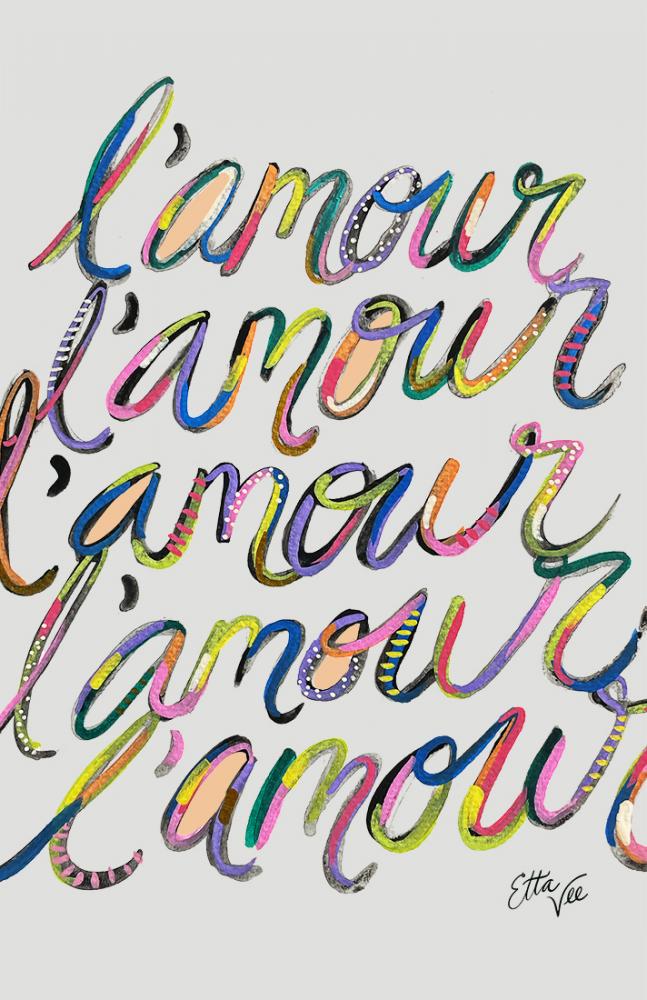 l'amour
l'amour
l'amour
l'amour
l'amour
Etta
Vee